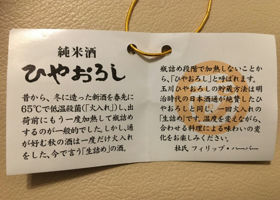 純米酒
ひやおろし
昔から、冬に造った新酒を春先に
65℃で低温殺菌(「火入れ」)し、出
荷前にもう一度加熱して瓶詰め
するのが一般的でした。しかし、通
が好む秋の酒は一度だけ火入れ
をした、今で言う「生詰め」の酒。
瓶詰め段階で加熱しないことか
ら、「ひやおろし」と呼ばれます。
玉川ひやおろしの貯蔵方法は明
治時代の日本酒通が絶賛したひ
やおろしと同じ、一回火入れの
「生詰め」です。温度を変えながら、
合わせる料理による味わいの変
化をお楽しみください。
杜氏 フィリップ・ハーパー